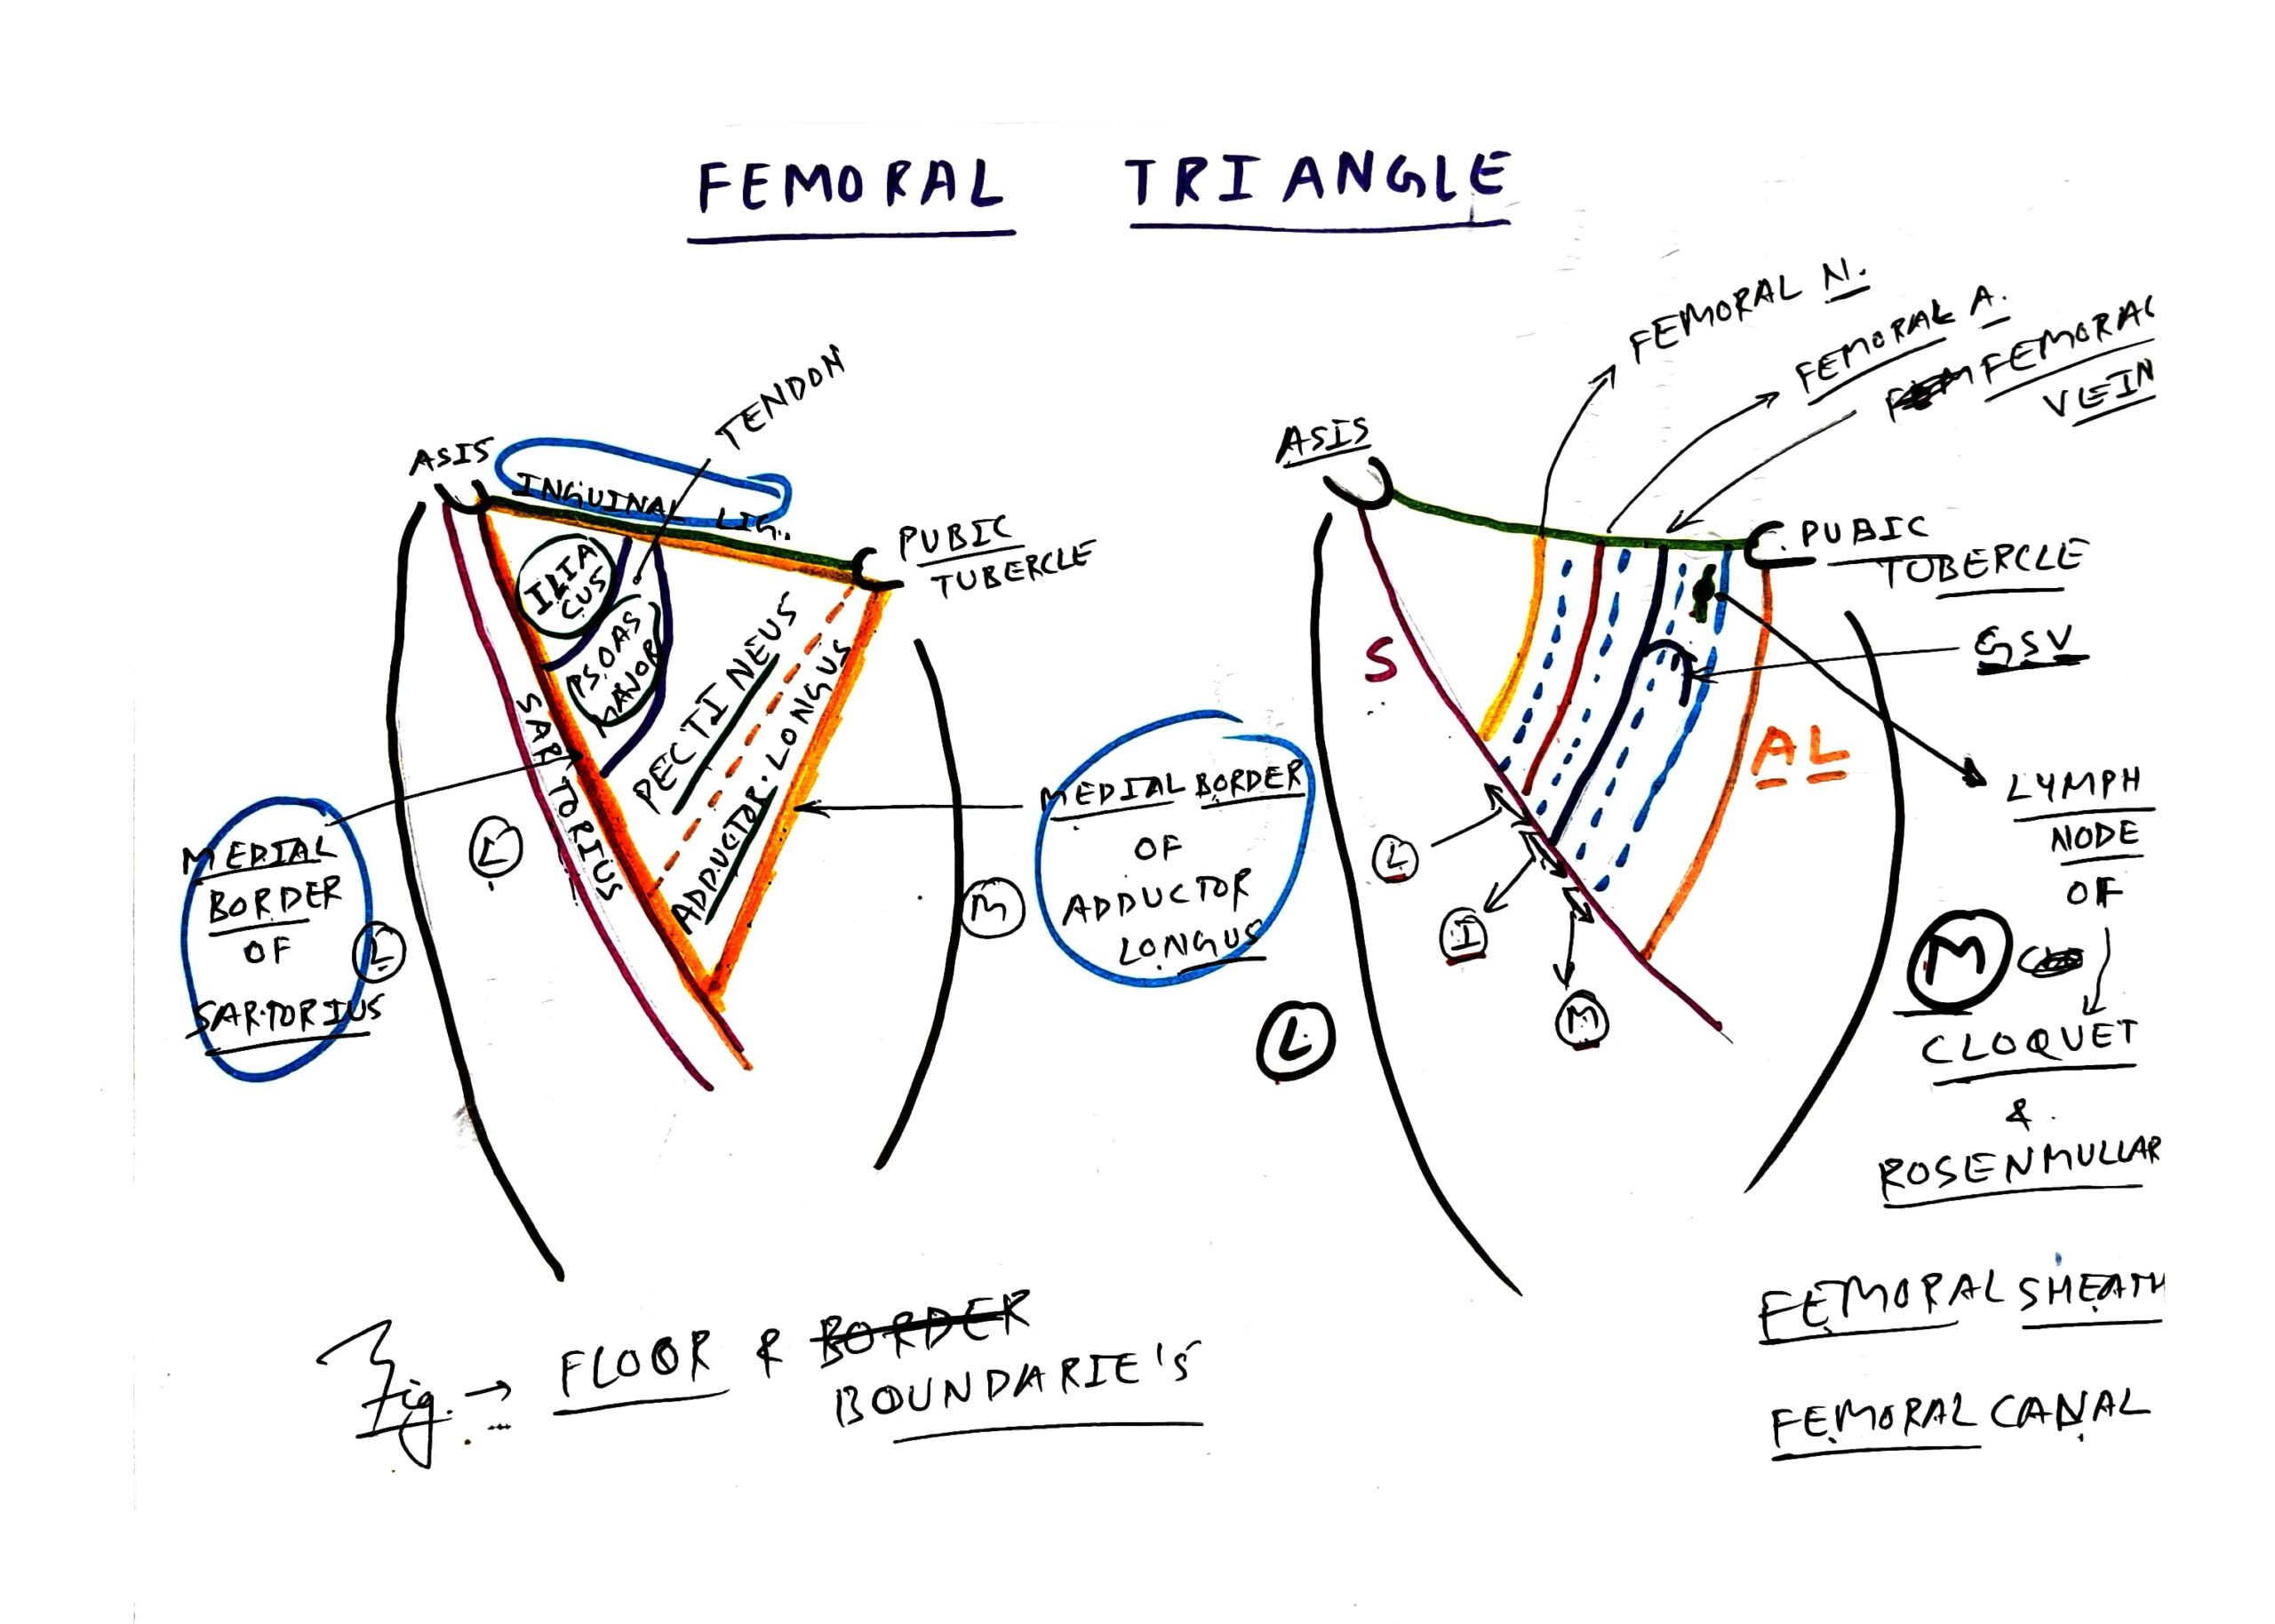 FEMORAL TRIANGLE
TENDON
ASIS
INGUINAL LIG.
PUBIC
TUBERCLE
ILIA
CUS
PSOAS
MAJOR
PECTINEUS
ADDUCTOR LONGUS
SARTORIUS
L
M
MEDIAL
BORDER
OF
L
SARTORIUS
MEDIAL BORDER
OF
ADDUCTOR
LONGUS
Fig. → FLOOR & BORDER
BOUNDARIE'S
FEMORAL N.
FEMORAL A.
FEMORAL
VEIN
ASIS
PUBIC
TOBERCLE
GSV
S
AL
L
I
M
L
M
LYMPH
NODE
OF
CLOQUET
&
ROSENMULLAR
FEMORAL SHEATH
FEMORAL CANAL